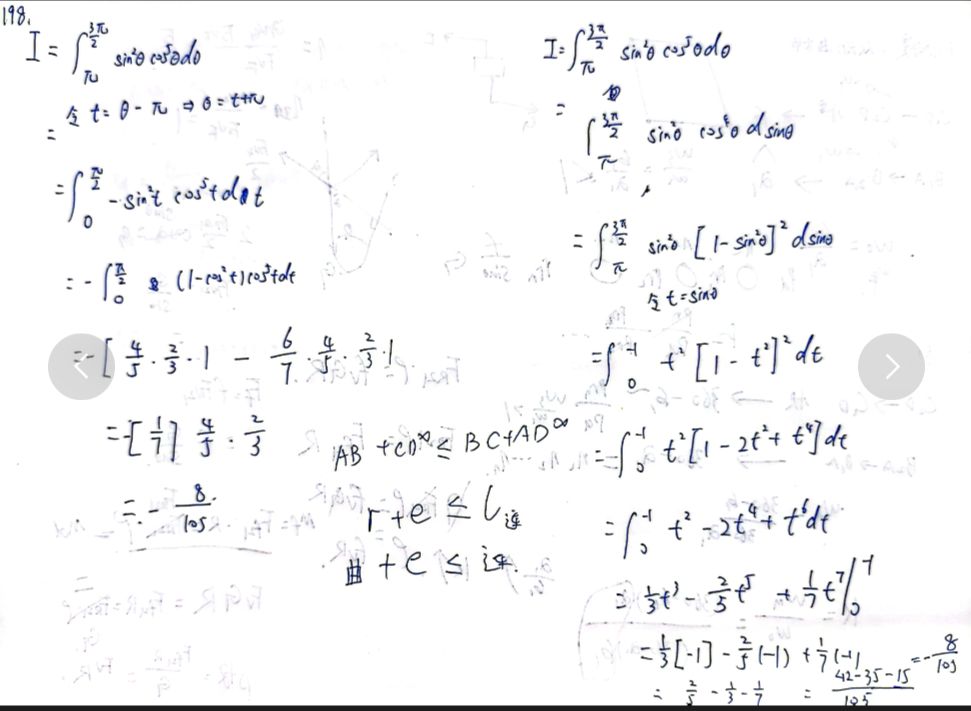 198.
I = ∫_π^{3π/2} sin²θ cos⁵θdθ
令 t = θ - π ⇒ θ = t+π
=
= ∫_0^{π/2} - sin²t cos⁵t dt
= - ∫_0^{π/2} (1-cos²t) cos⁵t dt
= - [ 4/5 · 2/3 · 1 - 6/7 · 4/5 · 2/3 · 1
= -[1/7] 4/5 · 2/3
= - 8/105
AB + CD ≤ BC + AD
r + e ≤ L连
曲 + e ≤ 连.
I = ∫_π^{3π/2} sin²θ cos⁵θdθ
= ∫_π^{3π/2} sin²θ cos⁴θ d sinθ
= ∫_π^{3π/2} sin²θ [1 - sin²θ]² d sinθ
令 t = sinθ
= ∫_0^{-1} t² [1 - t²]² dt
= ∫_0^{-1} t² [1 - 2t² + t⁴] dt
= ∫_0^{-1} t² - 2t⁴ + t⁶ dt
= 1/3 t³ - 2/5 t⁵ + 1/7 t⁷ |_0^{-1}
= 1/3 [-1] - 2/5 (-1) + 1/7 (-1) = - 8/105
= 2/5 - 1/3 - 1/7 = (42-35-15)/105